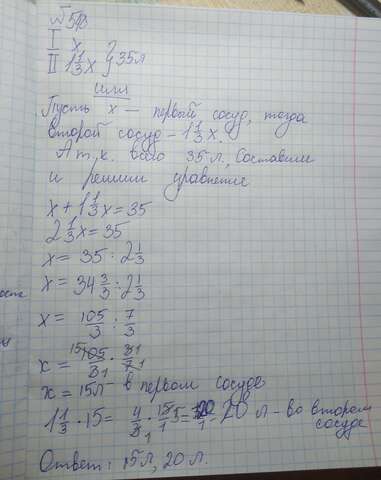 № 513
I x
II 1 1/3 x } 35л
или
Пусть x — первый сосуд, тогда
второй сосуд – 1 1/3 x.
А т.к. было 35 л, составим
и решим уравнение
x + 1 1/3 x = 35
2 1/3 x = 35
x = 35 : 2 1/3
x = 34 3/3 : 2 1/3
x = 105/3 : 7/3
x = 105/3 · 3/7
x = 15л – в первом сосуде
1 1/3 · 15 = 4/3 · 15/1 = 20/1 = 20 л – во втором
сосуде
Ответ: 15 л, 20 л.